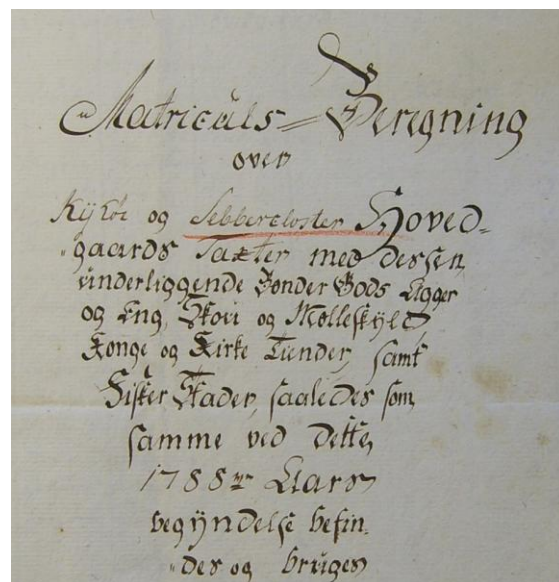 Matriculs-Beregning
over
og Sebbercloster Hoved-
gaards Taxter med dessen
underliggende Bønder Gods Agger
og Eng, Skov og Mølleskyld
Konge og Kirke Tiender, samt
Fisker Stader, saaledes som
samme ved dette
1788de Aars
begÿndelse befin-
des og bruges